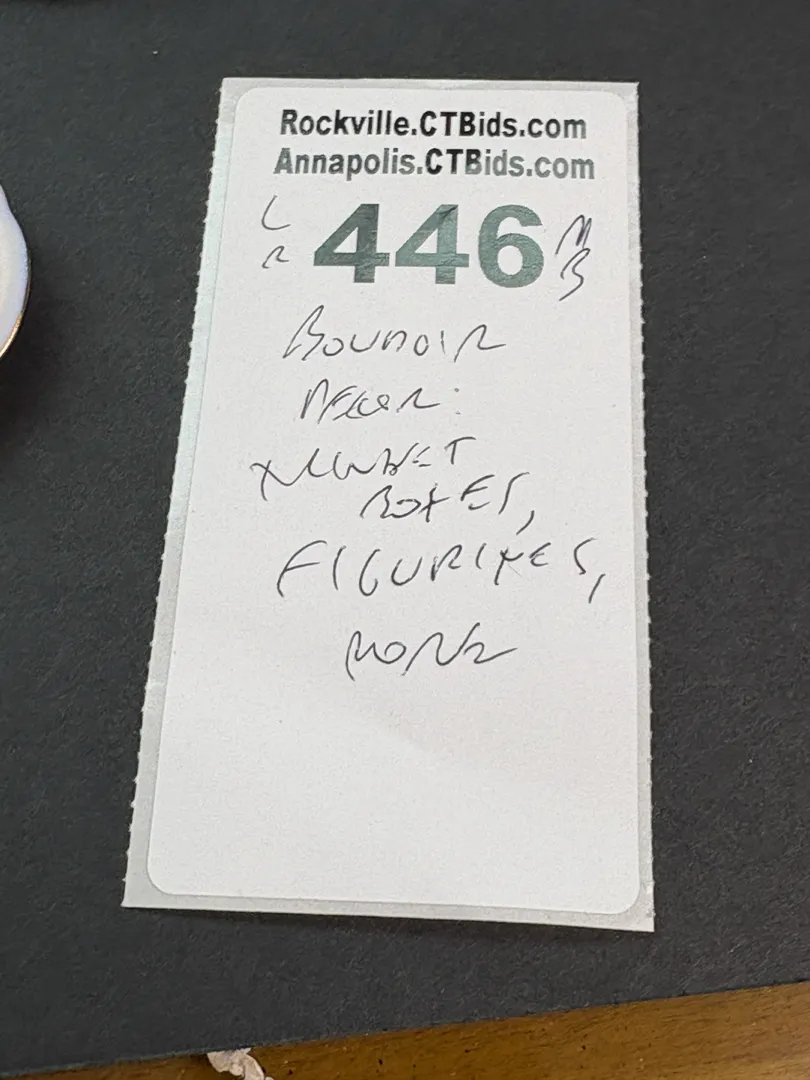 Rockville.CTBids.com
Annapolis.CTBids.com
L 446 M
R B
BOUDOIR
DECOR:
BOXES,
FIGURINES,
MORE